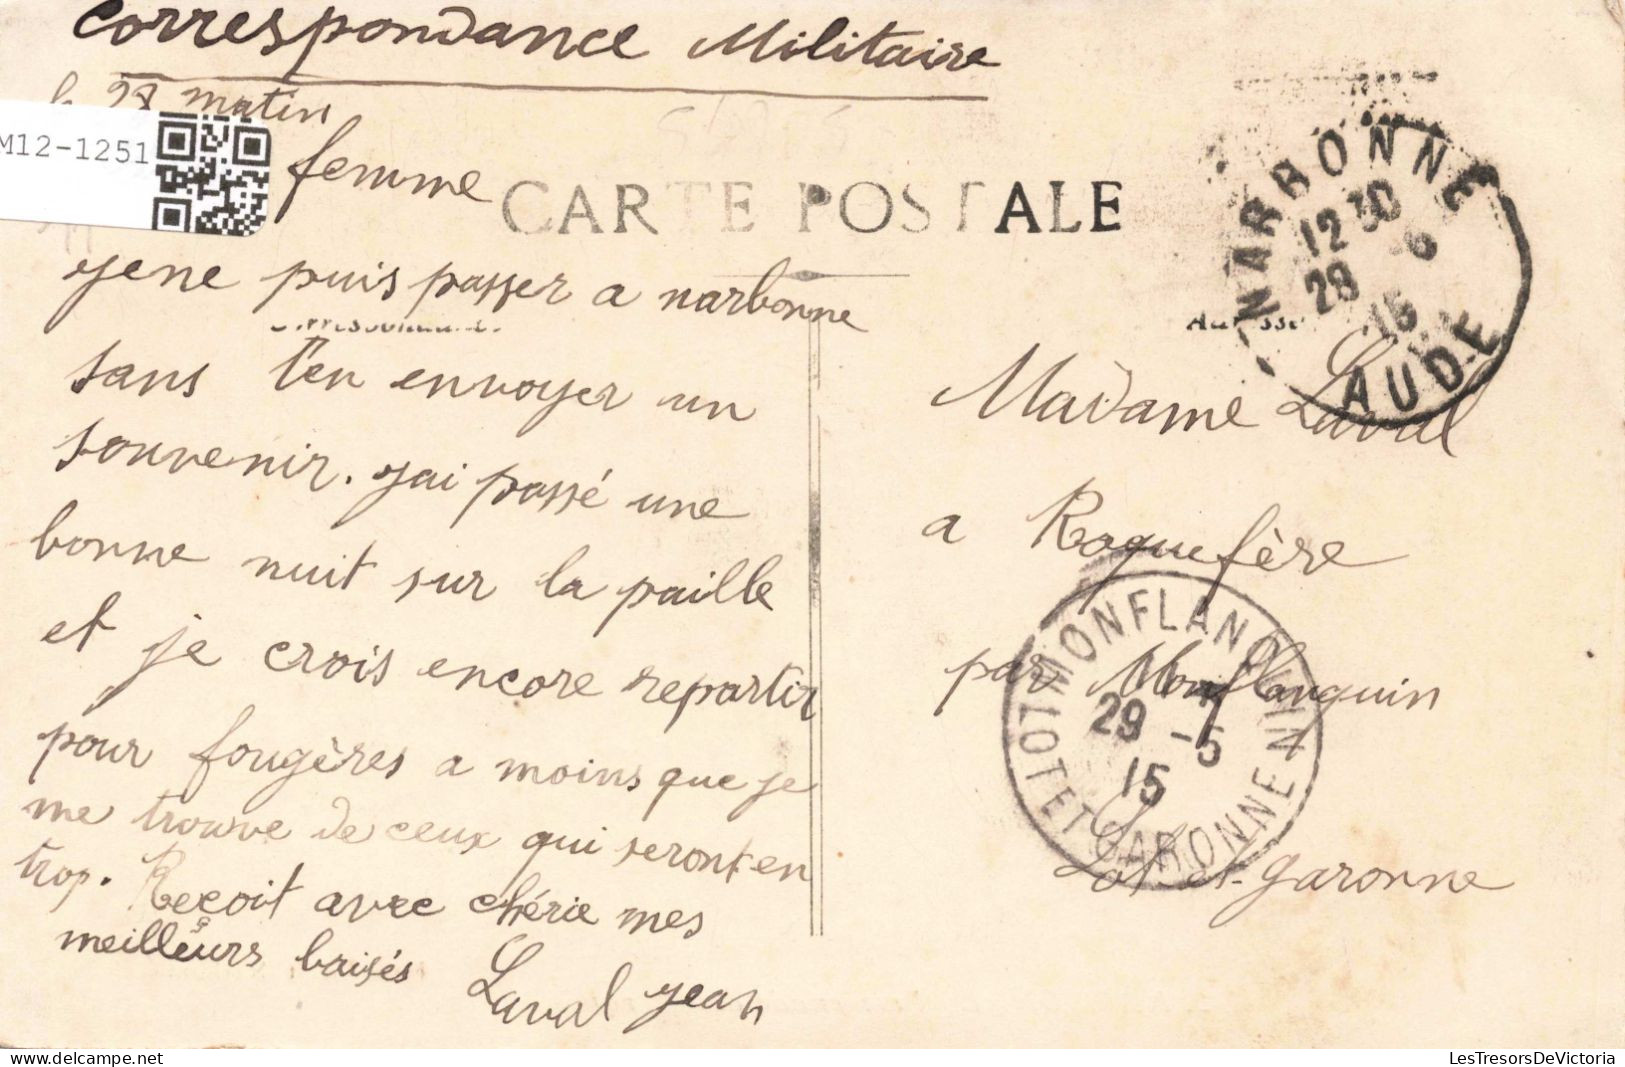 correspondance Militaire
le 28 matin
M12-1251
femme
CARTE POSTALE
yene puis passer a narbonne
sans t'en envoyer un
souvenir. yai passé une
bonne nuit sur la paille
et je crois encore repartir
pour fougères a moins que je
me trouve de ceux qui seront en
trop. Reçoit avec chérie mes
meilleurs baisés
Laval yean
NARBONNE
12 30
28 5
15
AUDE
Madame Laval
a Roquefère
par Monflanquin
Lot et-garonne
MONFLANQUIN
29 -5
15
LOT ET GARONNE
LesTresorsDeVictoria